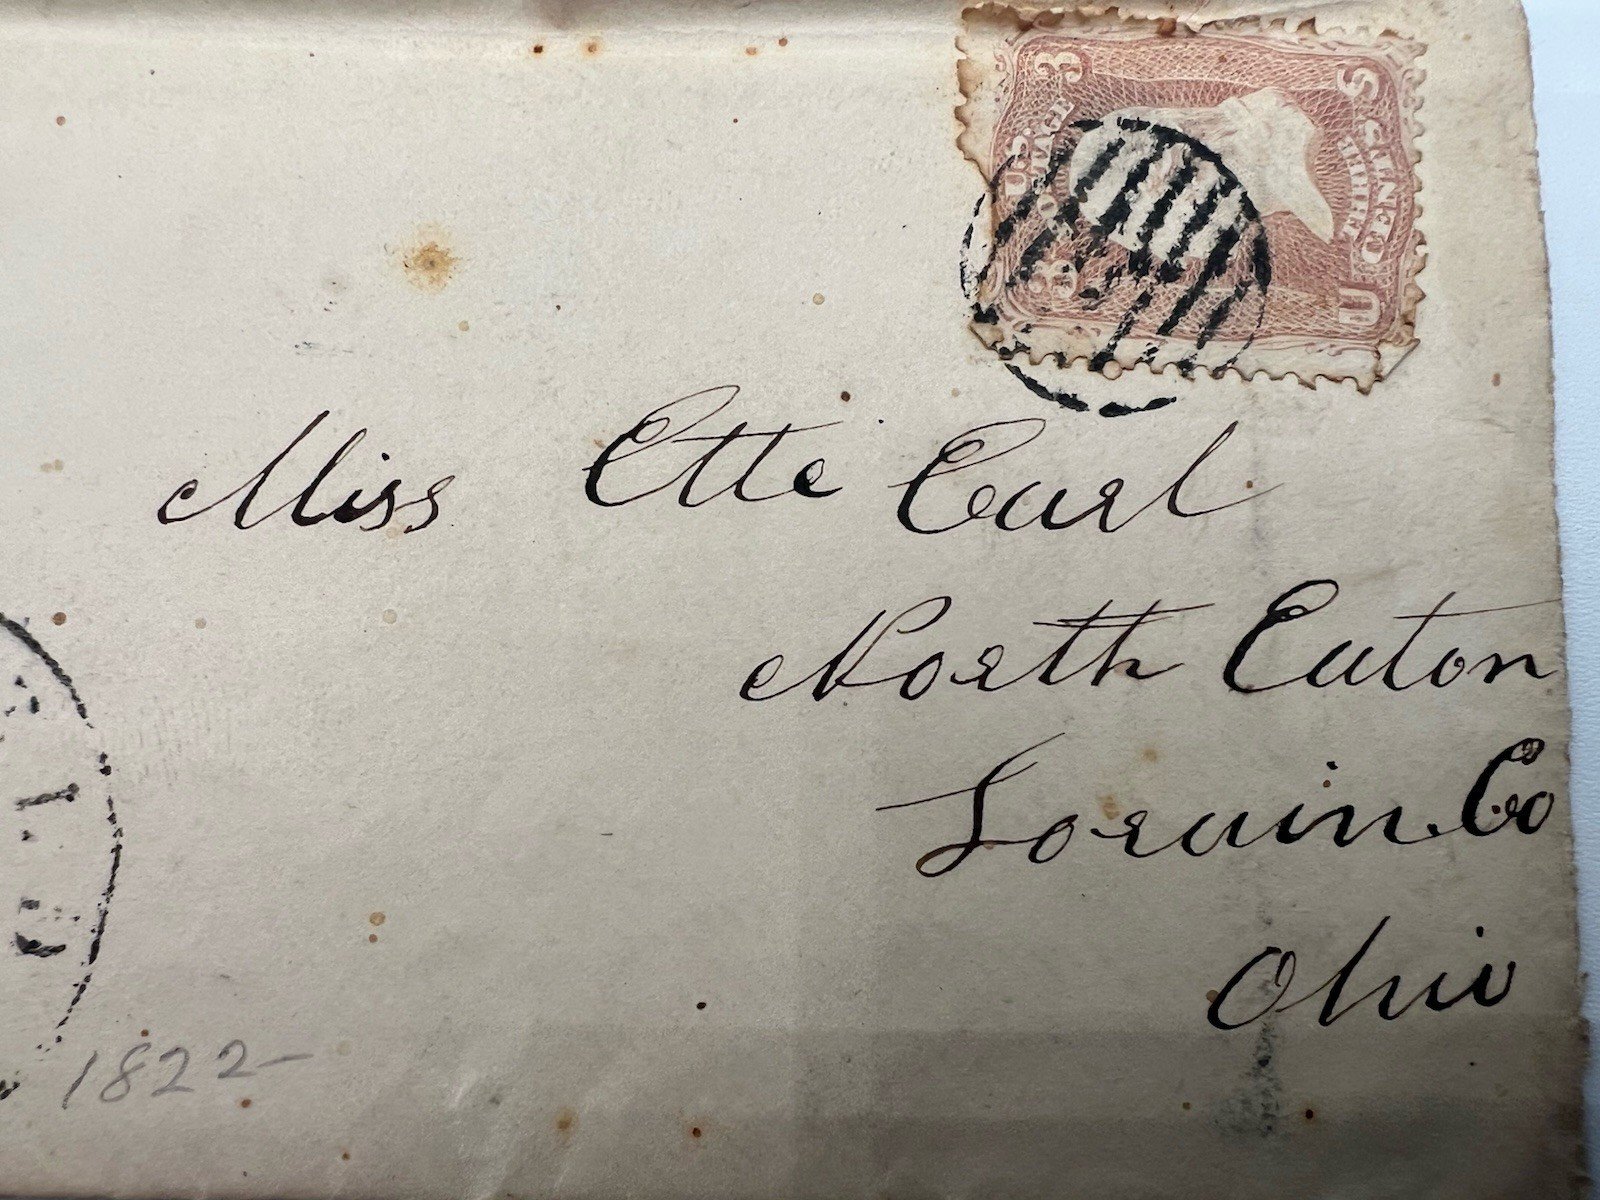 3 3
U.S. POSTAGE
THREE CENTS
U S
Miss Ette Earl
North Eaton
Lorain. Co
Ohio
1822-